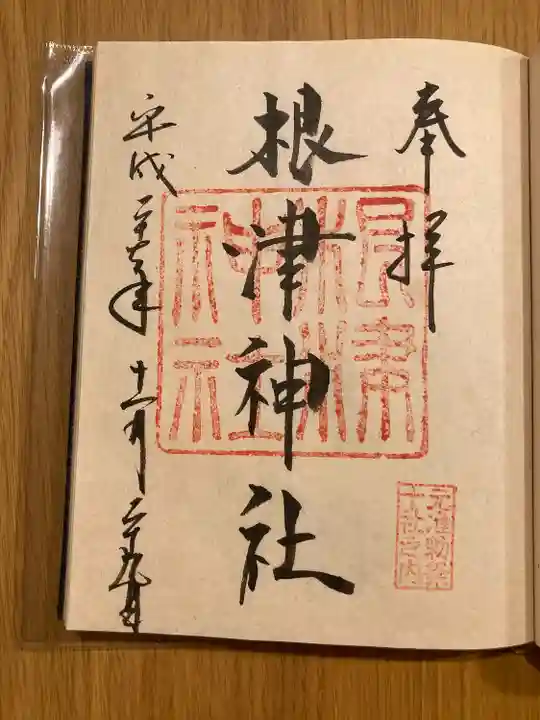 奉拝
元准勅祭
十社之内
根津神社
根津
神社
平成二十六年十一月二十九日